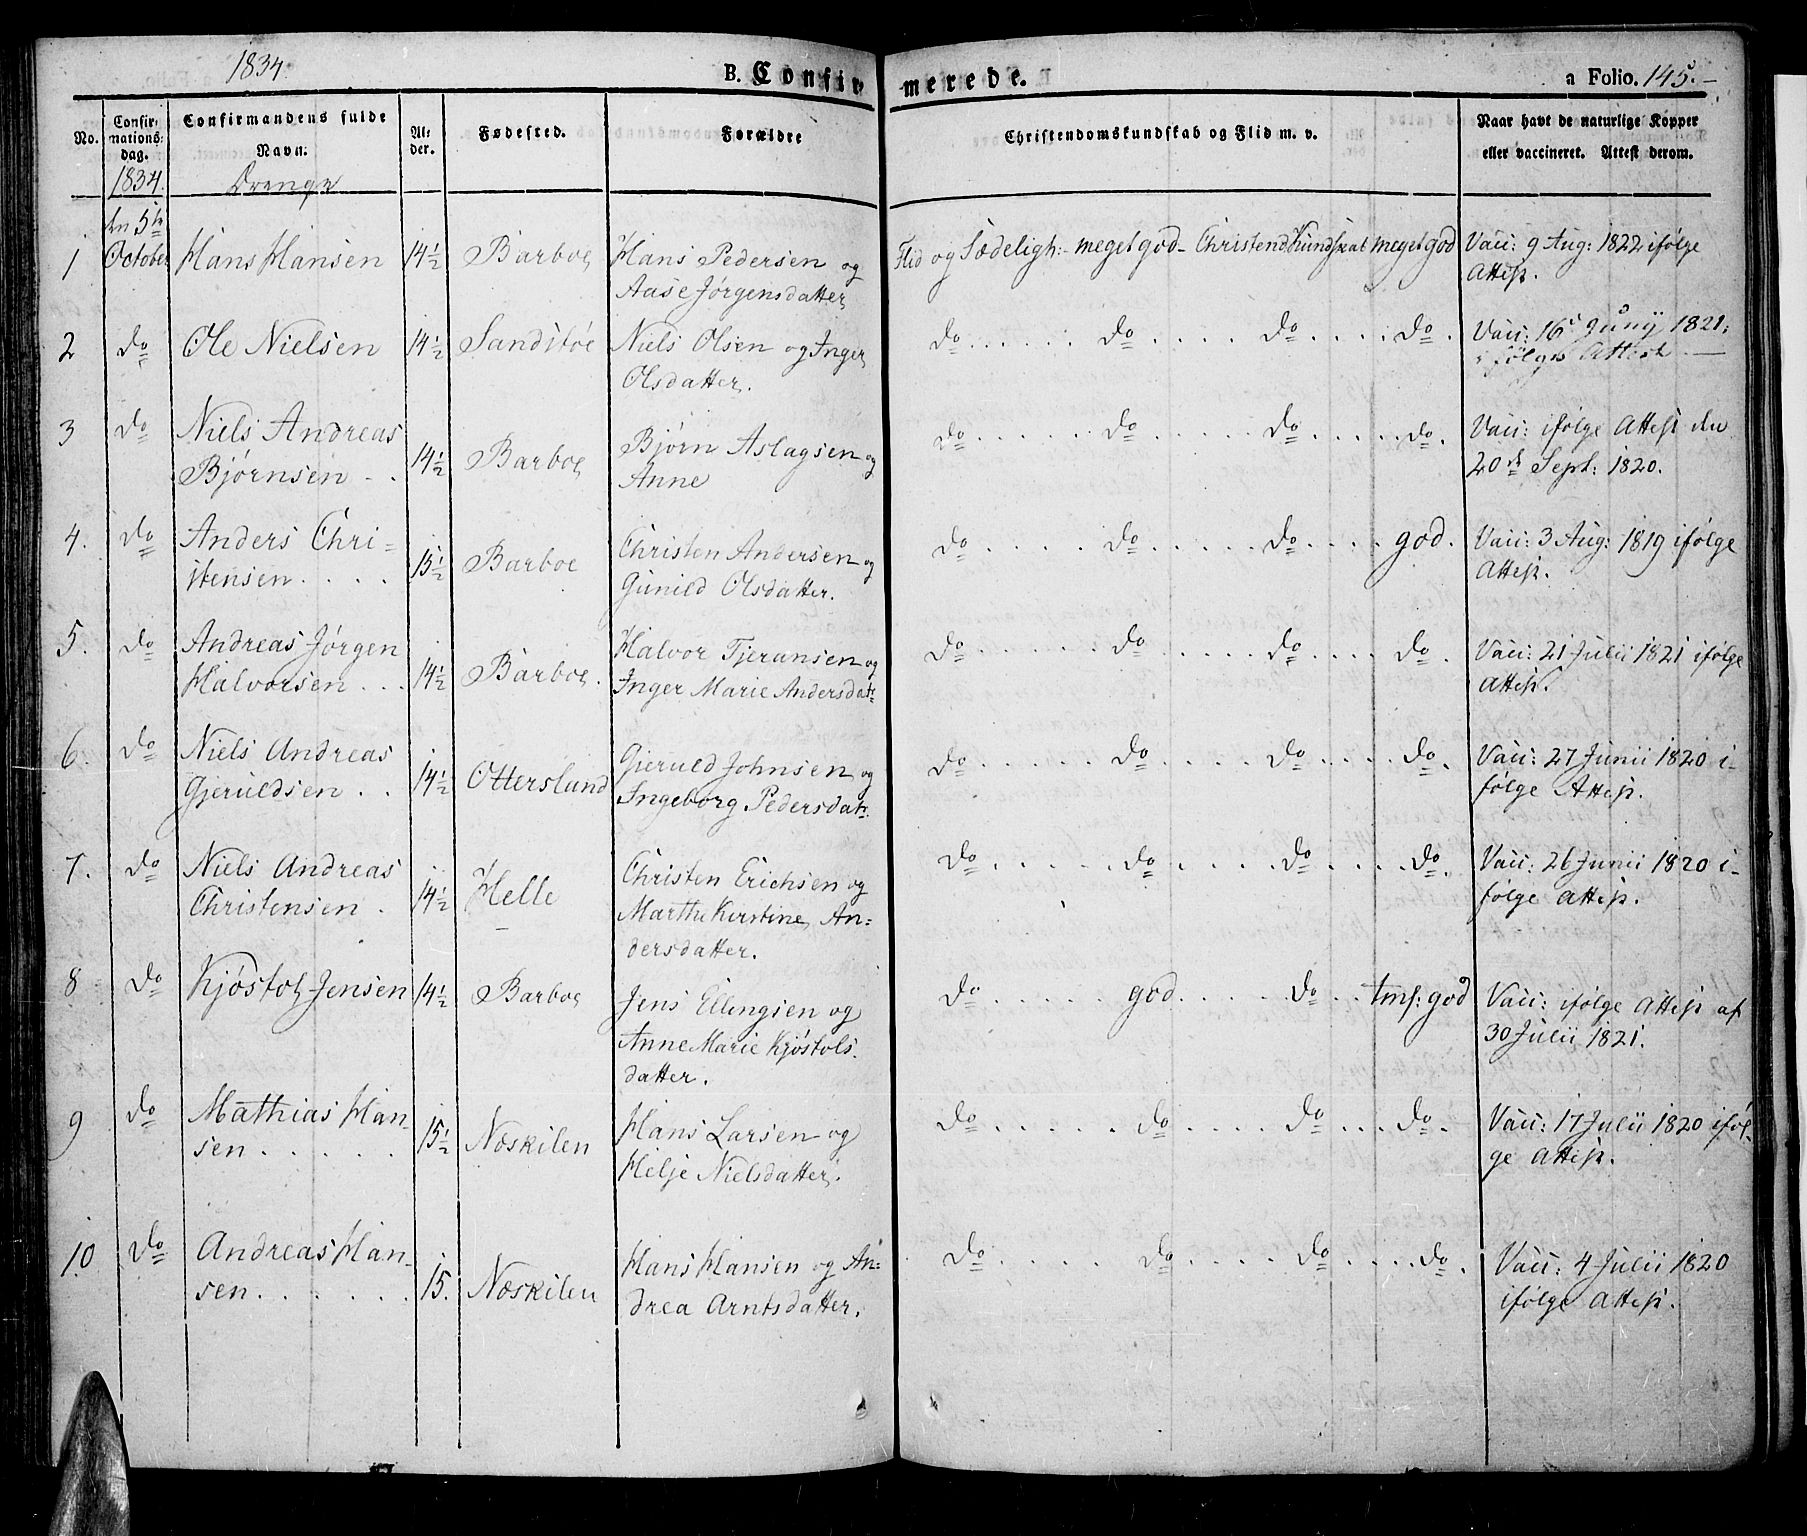 1834.
B. Confirmerede.
a Folio. 145.
No.
Confirmationsdag.
Confirmandens fulde Navn.
Alder.
Fødested.
Forældre
Christendomskundskab og Flid m. v.
Naar havt de naturlige Kopper eller vaccineret. Attest derom.
1834.
Drenge
1
den 5te October
Hans Hansen
14 1/2
Barboe
Hans Pedersen og
Aase Jørgensdatter
Flid og Sædeligh: meget god - Christend Kundskab meget god
Vacc: 9 Aug: 1822 ifølge
Attest.
2
do
Ole Nielsen
14 1/2
Sandstøe
Niels Olsen og Inger
Olsdatter.
do ..... do ..... do .... do.
Vacc: 16d Junij 1821.
ifølge Attest
3
do
Niels Andreas
Bjørnsen - .
14 1/2
Barboe
Bjørn Aslagsen og
Anne
do ..... do ..... do .... do.
Vacc: ifølge Attest den
20de Sept: 1820.
4.
do
Anders Chri-
stensen . . . .
15 1/2
Barboe
Christen Andersen og
Gunild Olsdatter.
do ..... do ..... do .... god.
Vacc: 3 Aug: 1819 ifølge
Attest.
5.
do
Andreas Jørgen
Halvorsen . . .
14 1/2
Barboe.
Halvor Tjeransen og
Inger Marie Andersdatr
do ..... do ..... do .... do.
Vacc: 21 Julii 1821 ifølge
Attest.
6.
do
Niels Andreas
Gjeruldsen . .
14 1/2
Otterslund
Gjeruld Johnsen og
Ingeborg Pedersdatr.
do ..... do ..... do .... do.
Vacc: 27 Junii 1820 i-
følge Attest.
7.
do
Niels Andreas
Christensen .
14 1/2
Helle
Christen Erichsen og
Marthe Kirstine An=
dersdatter.
do ..... do ..... do .... do.
Vacc: 26 Junii 1820 i-
følge Attest.
8
do
Kjøstol Jensen
14 1/2
Barboe
Jens Ellingsen og
Anne Marie Kjøstols.
datter.
do ..... god ..... do .. tml: god
Vacc: ifølge Attest af
30 Julii 1821.
9
do
Mathias Han-
sen . . . . .
15 1/2
Næskilen
Hans Larsen og
Helje Nielsdatter.
do ..... do ..... do ... do.
Vacc: 17 Julii 1820 iføl-
ge Attest.
10
do
Andreas Han-
sen . . . . . .
15.
Næskilen
Hans Hansen og An=
drea Arntsdatter.
do ..... do ..... do .... do.
Vacc: 4 Julii 1820
ifølge Attest.